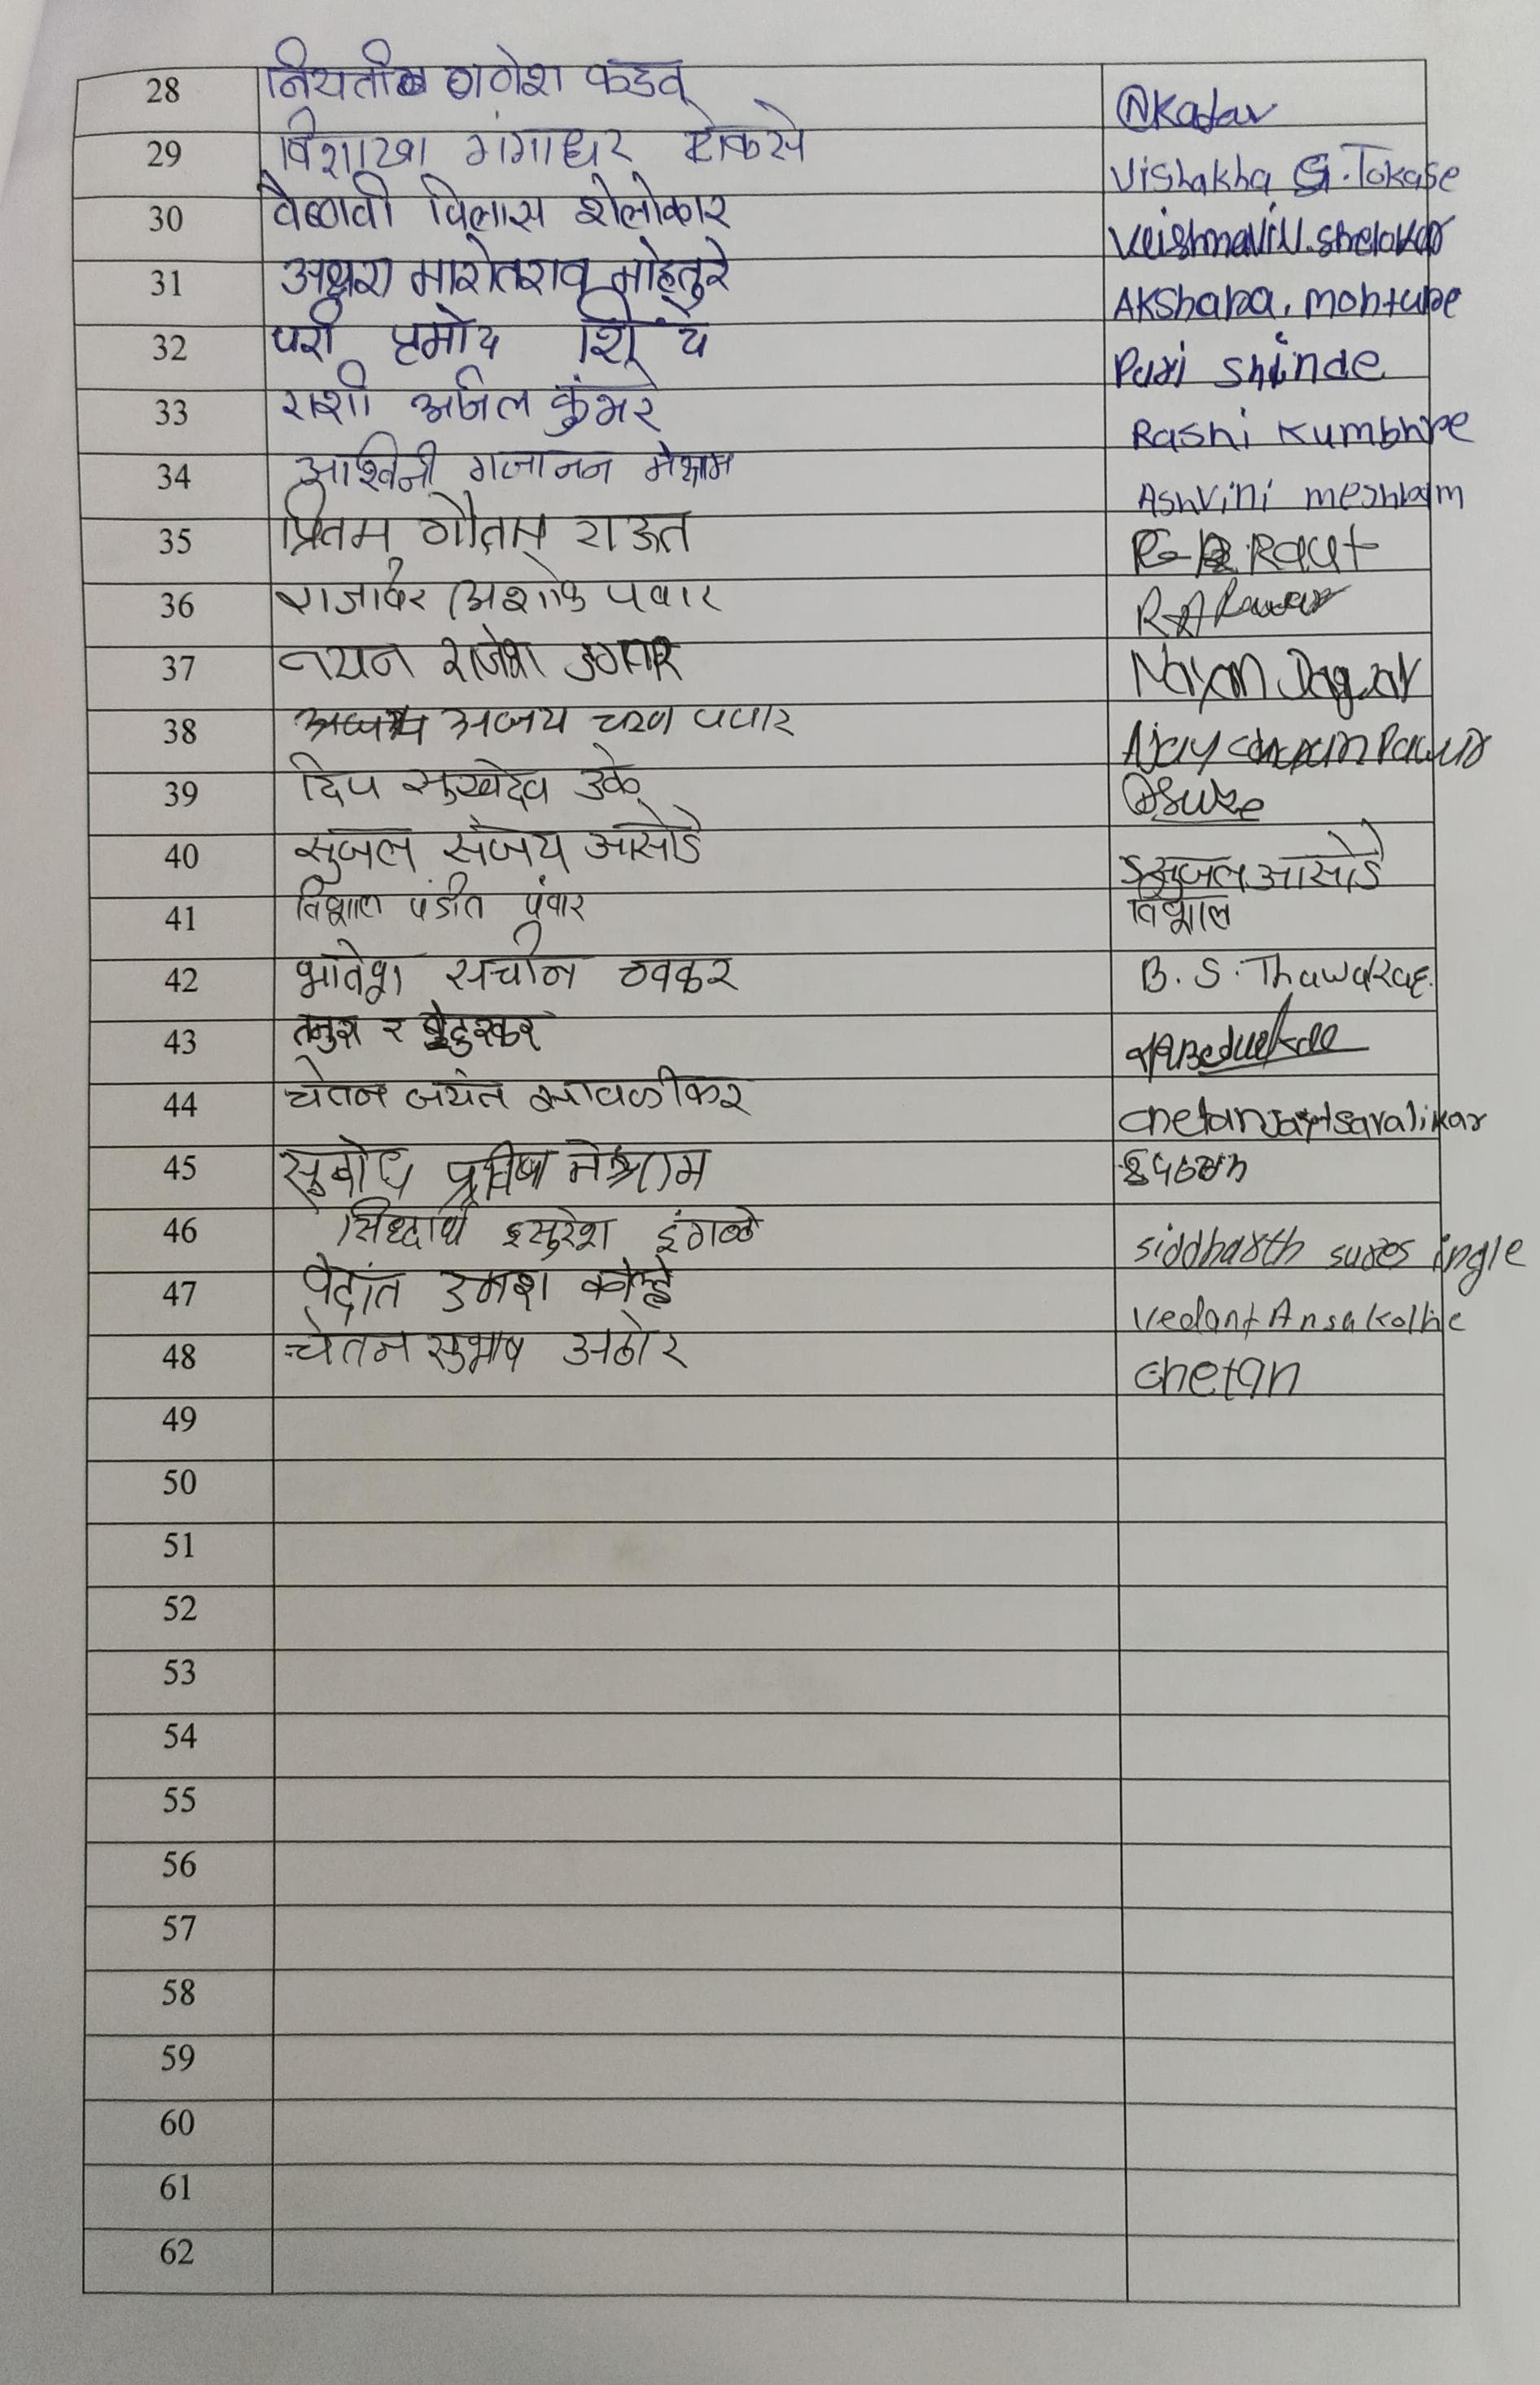 28 नियती गणेश कडव @NKadav
29 विशाखा गंगाधर टोकसे Vishakha G. Tokase
30 वैष्णवी विलास शेलोकार Veishnavi V. Shelokar
31 अक्षरा मारोतराव मोहतुरे AKshara. Mohture
32 परी प्रमोद शिंदे Pari Shinde
33 राशी अनिल कुंभरे Rashi Kumbhre
34 आश्विनी गजानन मेश्राम Ashvini meshram
35 प्रितम गौतम राऊत Raut
36 अशोक पवार R A Pawar
37 नयन राजेश डगवार Nayan Dagwar
38 अजय चरण पवार Ajay charan Pawar
39 दिप सुखदेव उके DSUKe
40 सुजल संजय आसोडे सुजल आसोडे
41 विशाल पंडीत पंवार विशाल
42 भावेश सचीन ठवकर B. S. Thawakar
43 तनुश र बेदुरकर
44 चेतन जयंत सावळीकर chetan Jayantsavalikar
45 सुबोध प्रविण मेश्राम
46 सिध्दार्थ सुरेश इंगळे siddharth sures ingle
47 वेदांत उमेश कोल्हे Vedant Kolhe
48 चेतन सुभाष अठोर chetan
49
50
51
52
53
54
55
56
57
58
59
60
61
62